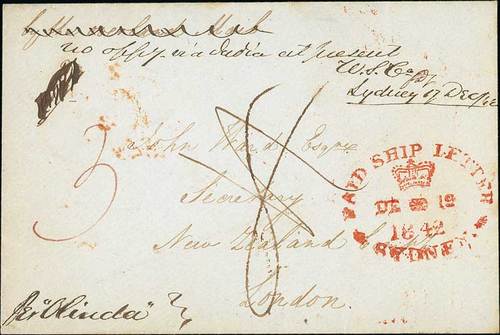 no oppy. via India at present
W.S. Co
Sydney 17 Dec
3
8
John Ward Esqre
Secretary
New Zealand Compy
London.
PAID SHIP LETTER
DE 19
1842
SYDNEY
Per "Olinda"